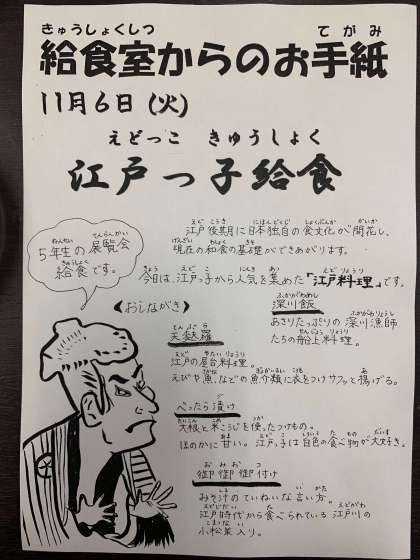 きゅうしょくしつ てがみ
給食室からのお手紙
11月6日(火)
えどっこ きゅうしょく
江戸っ子給食
えど こうき にほんどくじ しょくぶんか かいか
江戸後期に日本独自の食文化が開花し、
げんざい わしょく きそ
現在の和食の基礎ができあがります。
きょう えど こ にんき あつ えどりょうり
今日は、江戸っ子から人気を集めた「江戸料理」です。
ねんせい てんらんかい
5年生の展覧会
きゅうしょく
給食です。
〈おしながき〉
ふかがわめし
深川飯
ふかがわりょうし
あさりたっぷりの深川漁師
せんじょうりょうり
たちの船上料理。
てんぷら
天麩羅
えど やたいりょうり
江戸の屋台料理。
さかな ぎょかいるい ころも あ
えびや魚、などの魚介類に衣をつけサクッと揚げる。
べったら漬け
だいこん こめ つか
大根と米こうじを使ったつけもの。
あま えど こ しろいろ た もの だいす
ほのかに甘い。江戸っ子は白色の食べ物が大好き。
おみおつ
御御御付け
しる い かた
みそ汁のていねいな言い方。
えどじだい た えどがわ
江戸時代から食べられている江戸川の
こまつな い
小松菜入り。